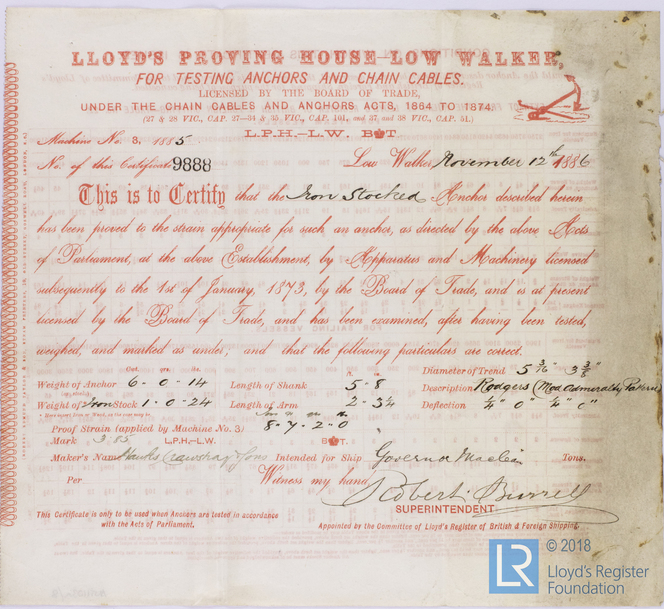 LLOYD'S PROVING HOUSE—LOW WALKER,
FOR TESTING ANCHORS AND CHAIN CABLES.
LICENSED BY THE BOARD OF TRADE,
UNDER THE CHAIN CABLES AND ANCHORS ACTS, 1864 TO 1874.
(27 & 28 VIC., CAP. 27—34 & 35 VIC., CAP. 101, and 37 and 38 VIC., CAP. 51.)
L.P.H.—L.W. B T
Machine No. 3, 1885
No. of this Certificate 9888 Low Walker, November 12th 1886
This is to Certify that the Iron Stocked Anchor described herein
has been proved to the strain appropriate for such an anchor, as directed by the above Acts
of Parliament, at the above Establishment, by Apparatus and Machinery licensed
subsequently to the 1st of January, 1873, by the Board of Trade, and is at present
licensed by the Board of Trade, and has been examined, after having been tested,
weighed, and marked as under, and that the following particulars are correct.
Diameter of Trend 5 3/16" 3 3/8
Weight of Anchor 6-0-14 Length of Shank 5-8 Description Rodgers (Mod Admiralty Pattern)
Weight of Iron Stock 1-0-24 Length of Arm 2-3¾ Deflection ¼" 0" ¼" 0"
Proof Strain (applied by Machine No. 3) 8-7-2-0
Mark 3.85 L.P.H.—L.W. B T
Maker's Name Hawks Crawshay & Sons Intended for Ship Governor Maclean Tons.
Per Witness my hand
Robert Burrell
SUPERINTENDENT
This Certificate is only to be used when Anchors are tested in accordance
with the Acts of Parliament.
Appointed by the Committee of Lloyd's Register of British & Foreign Shipping.
LR © 2018
Lloyd's Register
Foundation